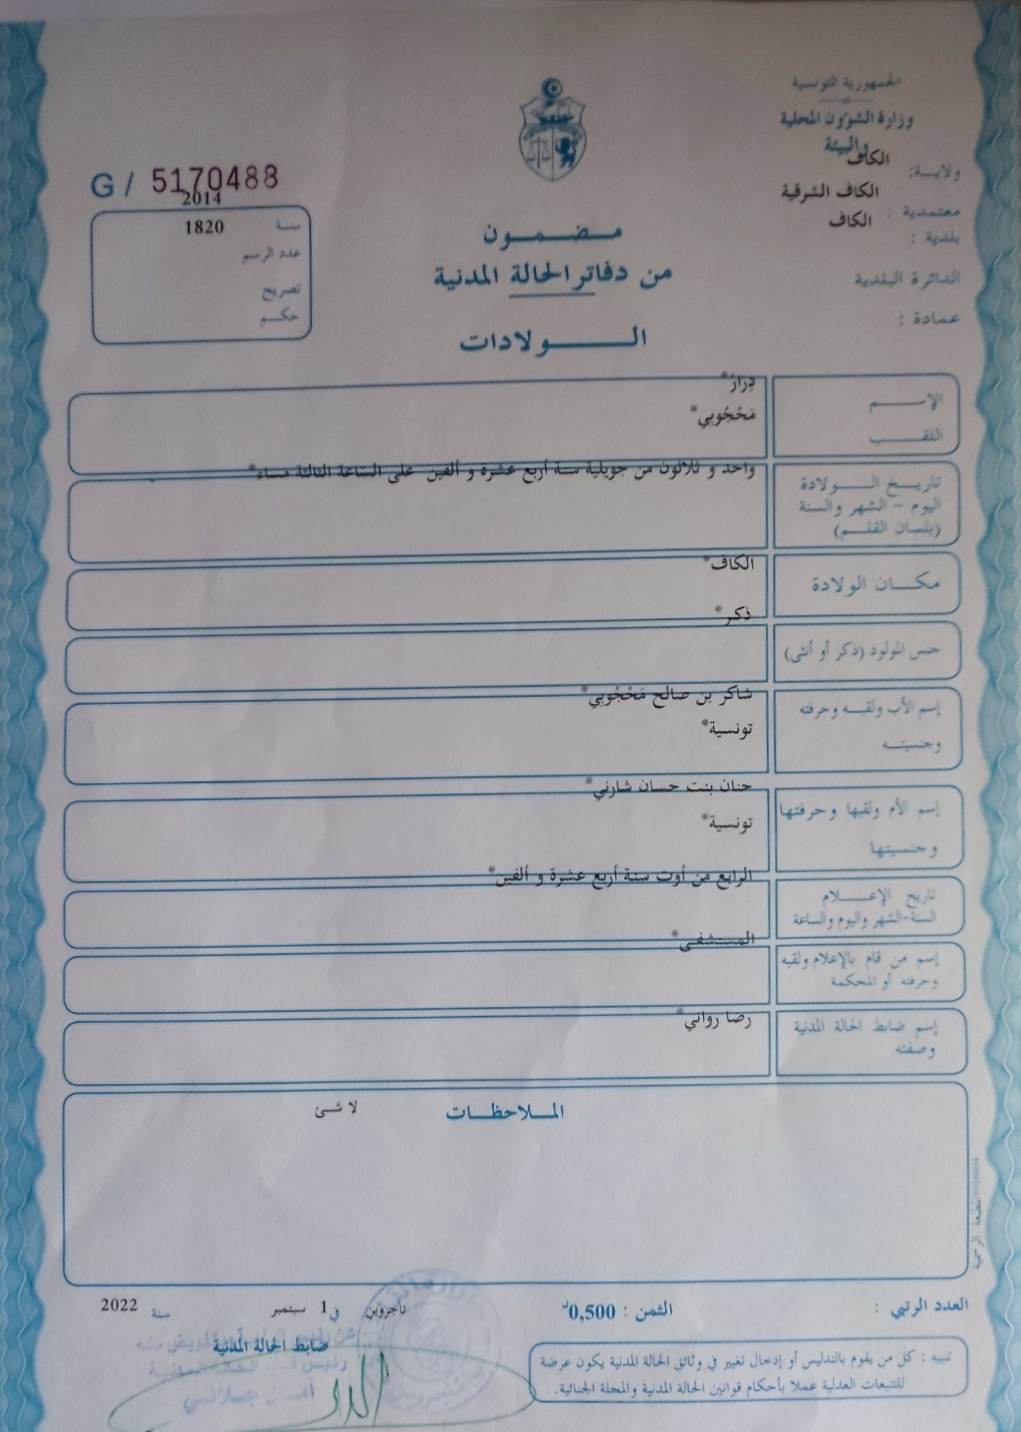 الجمهورية التونسية
وزارة الشؤون المحلية
والبيئة
ولاية: الكاف
معتمدية : الكاف الشرقية
بلدية : الكاف
الدائرة البلدية
عمادة :
G / 5170488
سنة 2014
عدد الرسم 1820
تصريح
حكم
مضمون
من دفاتر الحالة المدنية
الولادات
الإسم دِرَار*
اللقب مَحْجُوبِي*
تاريخ الولادة
اليوم - الشهر والسنة
(بلسان القلم)
واحد و ثلاثون من جويلية سنة أربع عشرة و ألفين على الساعة الثالثة مساء*
مكان الولادة
الكاف*
جنس المولود (ذكر أو أنثى)
ذكر*
إسم الأب ولقبه وحرفته
وجنسيته
شاكر بن صالح مَحْجُوبِي*
تونسية*
إسم الأم ولقبها وحرفتها
وجنسيتها
حنان بنت حسان شارني*
تونسية*
تاريخ الإعلام
السنة-الشهر واليوم والساعة
الرابع من أوت سنة أربع عشرة و ألفين*
إسم من قام بالإعلام ولقبه
وحرفته أو المحكمة
المستشفى*
إسم ضابط الحالة المدنية
وصفته
رضا رواني*
الملاحظات
لا شئ
المطبعة الرسمية
العدد الرتبي :
الثمن : 0,500د
تاجروين في 1 سبتمبر سنة 2022
ضابط الحالة المدنية
تنبيه : كل من يقوم بالتدليس أو إدخال تغيير في وثائق الحالة المدنية يكون عرضة
للتتبعات العدلية عملا بأحكام قوانين الحالة المدنية والمجلة الجنائية.